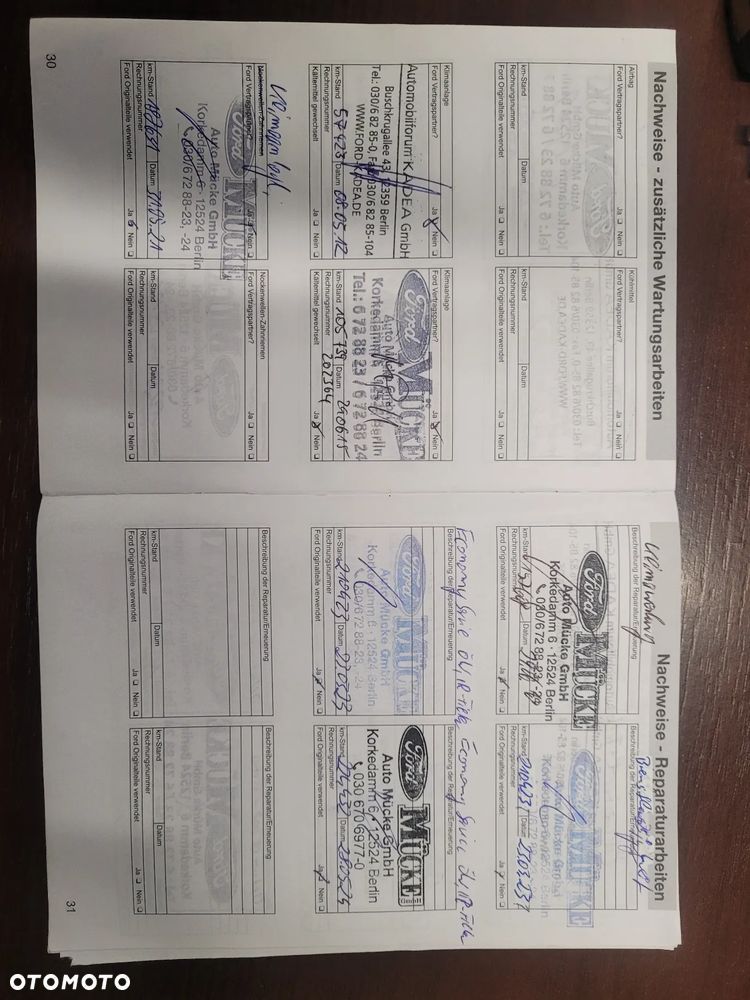 Nachweise - zusätzliche Wartungsarbeiten
Airbag
Ford Vertragspartner? Ja Nein
km-Stand Datum
Rechnungsnummer
Ford Originalteile verwendet Ja Nein
Kühlmittel
Ford Vertragspartner? Ja Nein
km-Stand Datum
Rechnungsnummer
Ford Originalteile verwendet Ja Nein
Klimaanlage
Ford Vertragspartner? Ja Nein
Automobilforum KAIDEA GmbH
Buschkrugallee 43, 12359 Berlin
Tel.: 030/6 82 85-0, Fax 030/6 82 85-104
WWW.FORD-KAIDEA.DE
km-Stand 57423 Datum 08.05.12
Rechnungsnummer
Kältemittel gewechselt Ja Nein
Klimaanlage
Ford Vertragspartner? Ja Nein
Ford MÜCKE
Auto Mücke GmbH
Korkedamm 6, 12524 Berlin
Tel.: 6 72 88 23 / 6 72 88 24
km-Stand 105739 Datum 240615
Rechnungsnummer 202364
Kältemittel gewechselt Ja Nein
Nockenwellen-Zahnriemen
Ford Vertragspartner? Ja Nein
Ford MÜCKE
Auto Mücke GmbH
Korkedamm 6 · 12524 Berlin
030/6 72 88-23, -24
km-Stand Datum 31.08.21
Rechnungsnummer
Ford Originalteile verwendet Ja Nein
Nockenwellen-Zahnriemen
Ford Vertragspartner? Ja Nein
km-Stand Datum
Rechnungsnummer
Ford Originalteile verwendet Ja Nein
30
Nachweise - Reparaturarbeiten
Beschreibung der Reparatur/Erneuerung
Klimawartung
Ford MÜCKE
Auto Mücke GmbH
Korkedamm 6 · 12524 Berlin
030/6 72 88-23, -24
km-Stand Datum
Rechnungsnummer
Ford Originalteile verwendet Ja Nein
Beschreibung der Reparatur/Erneuerung
Ford MÜCKE
km-Stand 210423 Datum 23.03.23
Rechnungsnummer
Ford Originalteile verwendet Ja Nein
Beschreibung der Reparatur/Erneuerung
Economy Service
Ford MÜCKE
Auto Mücke GmbH
Korkedamm 6 · 12524 Berlin
030/6 72 88-23, -24
km-Stand 210423 Datum 23.03.23
Rechnungsnummer
Ford Originalteile verwendet Ja Nein
Beschreibung der Reparatur/Erneuerung
Economy Service
Ford MÜCKE GmbH
Auto Mücke GmbH
Korkedamm 6, 12524 Berlin
030 670 6977-0
km-Stand Datum
Rechnungsnummer
Ford Originalteile verwendet Ja Nein
Beschreibung der Reparatur/Erneuerung
km-Stand Datum
Rechnungsnummer
Ford Originalteile verwendet Ja Nein
Beschreibung der Reparatur/Erneuerung
km-Stand Datum
Rechnungsnummer
Ford Originalteile verwendet Ja Nein
31
OTOMOTO